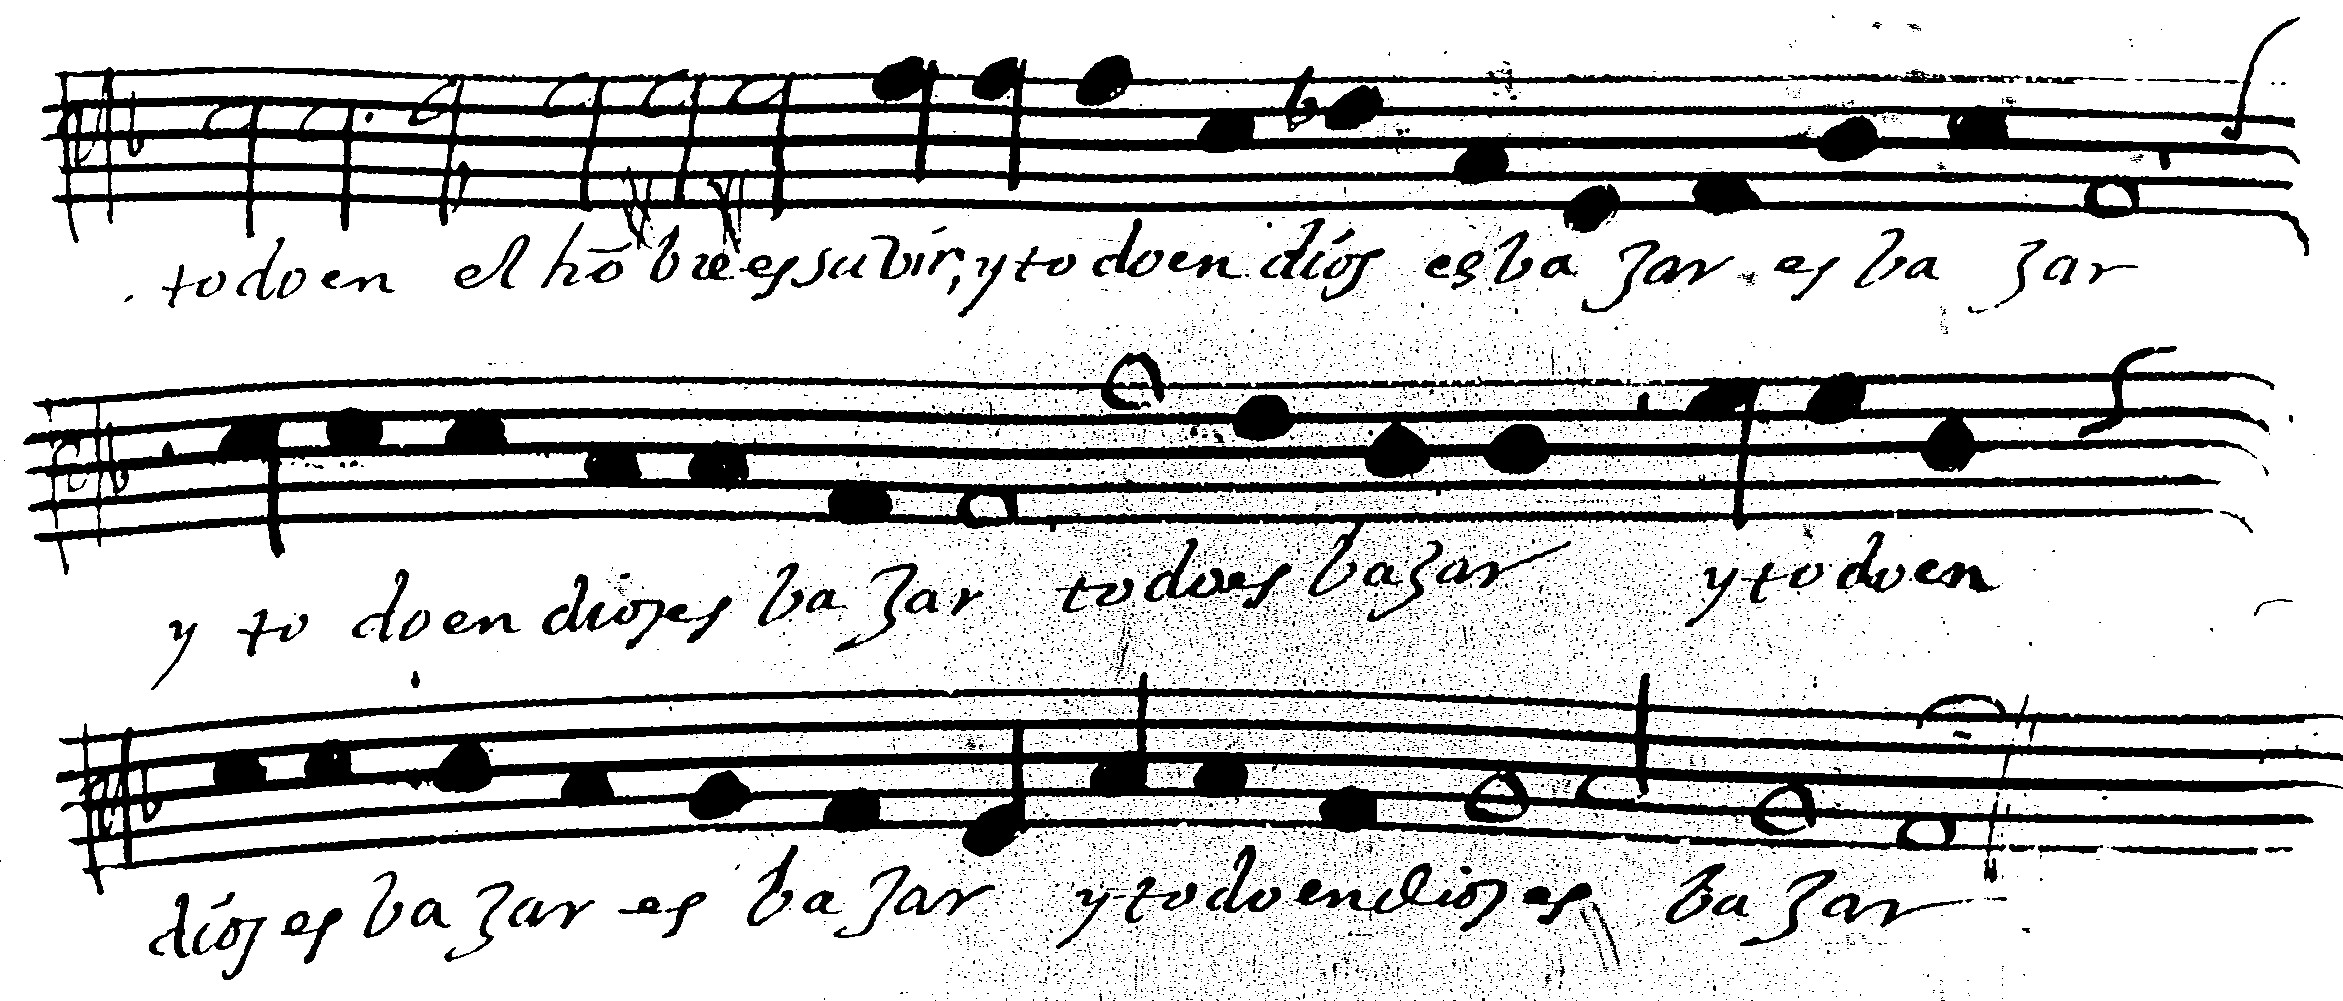 todo en el hō bre es subir, y todo en dios es ba zar es ba zar
y to do en dios es ba zar todo es bazar y todo en
dios es ba zar es ba zar y todo en dios es ba zar